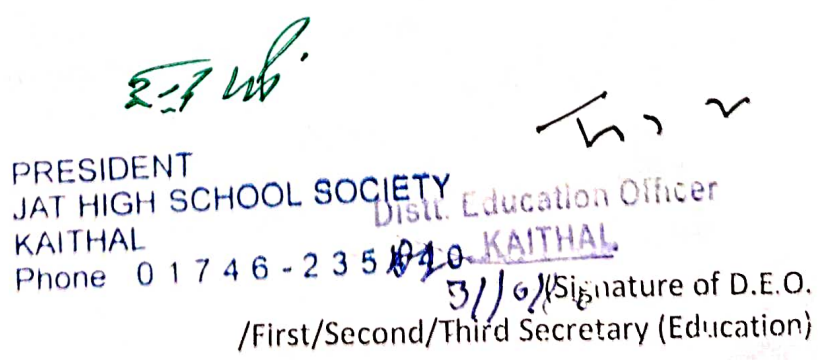 PRESIDENT
JAT HIGH SCHOOL SOCIETY
KAITHAL
Phone 01746-235
Distt. Education Officer
KAITHAL
(Signature of D.E.O.
/First/Second/Third Secretary (Education)